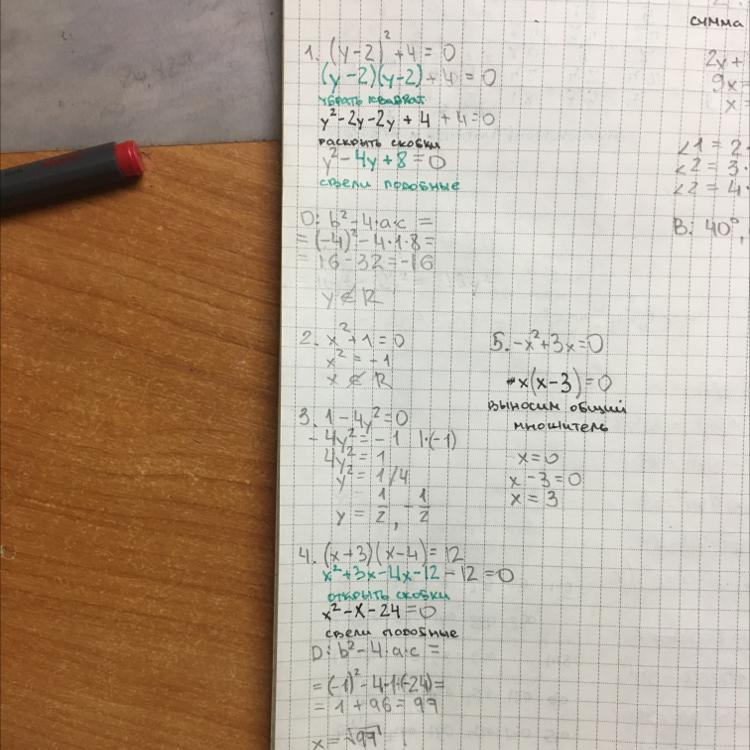 1. (y-2)² + 4 = 0
(y-2)(y-2) + 4 = 0
убрать квадрат
y² - 2y - 2y + 4 + 4 = 0
раскрыть скобки
y² - 4y + 8 = 0
свели подобные
D: b² - 4·a·c =
= (-4)² - 4·1·8 =
= 16 - 32 = -16
y ∉ R
2. x² + 1 = 0
x² = -1
x ∉ R
3. 1 - 4y² = 0
- 4y² = -1 | ·(-1)
4y² = 1
y² = 1/4
y = 1/2, -1/2
4. (x+3)(x-4) = 12
x² + 3x - 4x - 12 - 12 = 0
открыть скобки
x² - x - 24 = 0
свели подобные
D: b² - 4·a·c =
= (-1)² - 4·1·(-24) =
= 1 + 96 = 97
x = √97
5. -x² + 3x = 0
-x(x-3) = 0
выносим общий
множитель
x = 0
x - 3 = 0
x = 3
сумма
2y +
9x =
x
∠1 = 2
∠2 = 3
∠2 = 4
В: 40°,